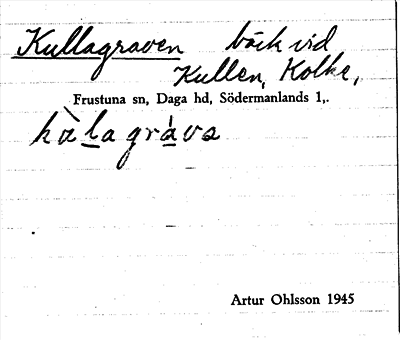 Kullagraven bäck vid
Kullen, Kolke,
Frustuna sn, Daga hd, Södermanlands l,.
kàlagrávs
Artur Ohlsson 1945